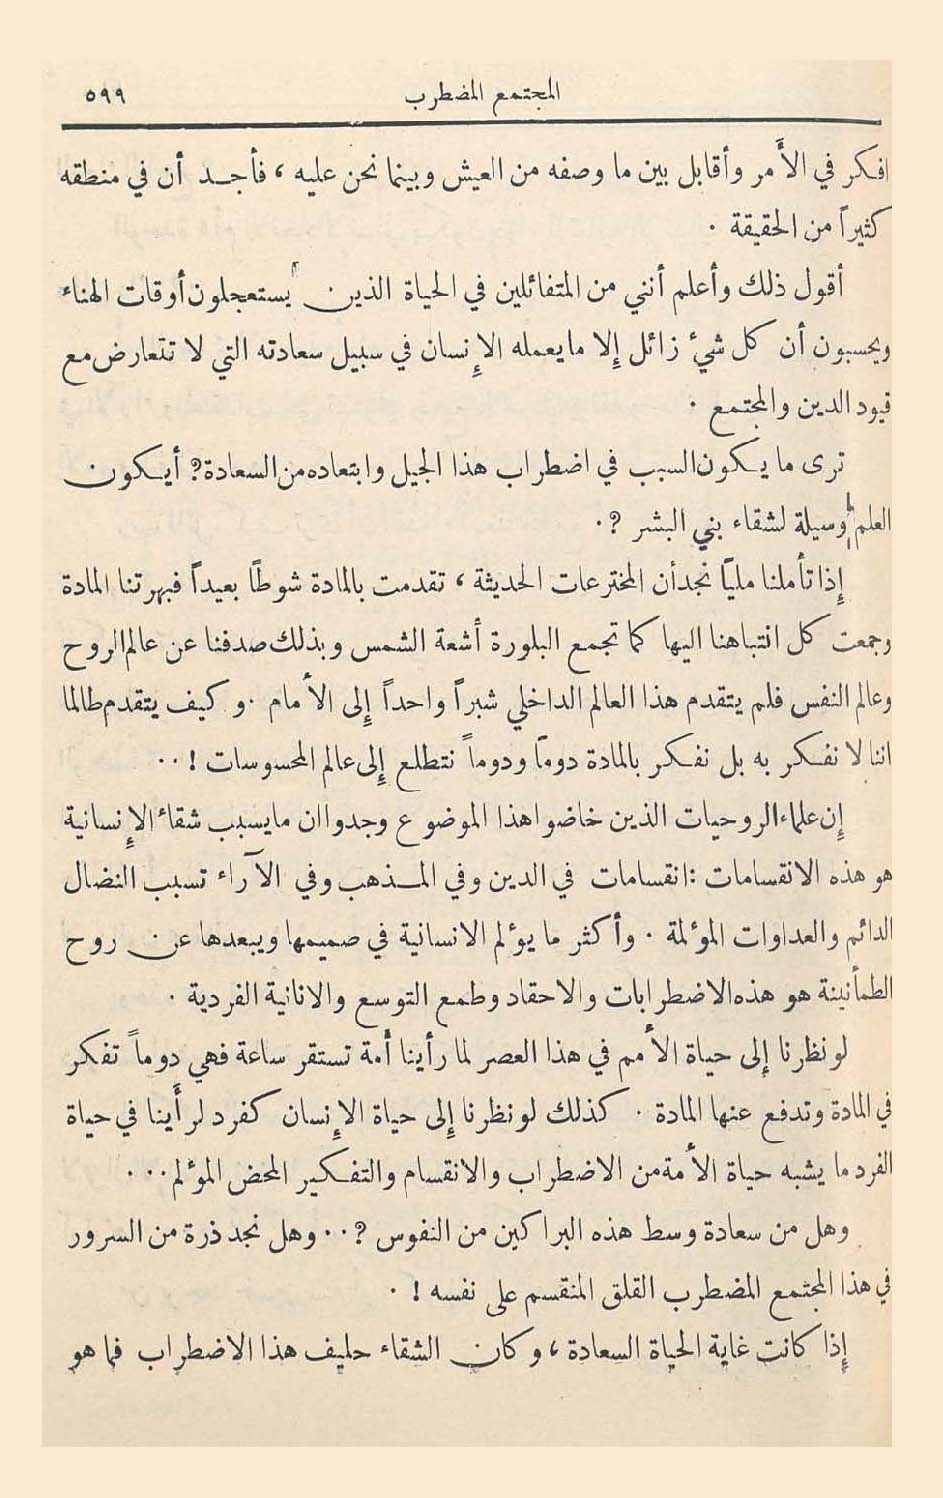 المجتمع المضطرب ٥٩٩
افكر في الأمر وأقابل بين ما وصفه من العيش وبينما نحن عليه ، فأجد أن في منطقه
كثيراً من الحقيقة .
أقول ذلك وأعلم أنني من المتفائلين في الحياة الذين يستعجلون أوقات الهناء
ويحسبون أن كل شيء زائل إلا ما يعمله الإنسان في سبيل سعادته التي لا تتعارض مع
قيود الدين والمجتمع .
ترى ما يكون السبب في اضطراب هذا الجيل وابتعاده من السعادة ؟ أيكون
العلم وسيلة لشقاء بني البشر ؟ .
إذا تأملنا ملياً نجد أن المخترعات الحديثة ، تقدمت بالمادة شوطاً بعيداً فبهرتنا المادة
وجمعت كل انتباهنا اليها كما تجمع البلورة أشعة الشمس وبذلك صدفنا عن عالم الروح
وعالم النفس فلم يتقدم هذا العالم الداخلي شبراً واحداً إلى الأمام . وكيف يتقدم طالما
اننا لا نفكر به بل نفكر بالمادة دوماً ودوماً نتطلع إلى عالم المحسوسات ! . .
إن علماء الروحيات الذين خاضوا هذا الموضوع وجدوا ان ما يسبب شقاء الإنسانية
هو هذه الانقسامات : انقسامات في الدين وفي المذهب وفي الآراء تسبب النضال
الدائم والعداوات المؤلمة . وأكثر ما يؤلم الانسانية في صميمها ويبعدها عن روح
الطمأنينة هو هذه الاضطرابات والاحقاد وطمع التوسع والانانية الفردية .
لو نظرنا إلى حياة الأمم في هذا العصر لما رأينا أمة تستقر ساعة فهي دوماً تفكر
في المادة وتدفع عنها المادة . كذلك لو نظرنا إلى حياة الإنسان كفرد لرأينا في حياة
الفرد ما يشبه حياة الأمة من الاضطراب والانقسام والتفكير المحض المؤلم . . .
وهل من سعادة وسط هذه البراكين من النفوس ؟ . . وهل نجد ذرة من السرور
في هذا المجتمع المضطرب القلق المنقسم على نفسه ! .
إذا كانت غاية الحياة السعادة ، وكان الشقاء حليف هذا الاضطراب فما هو